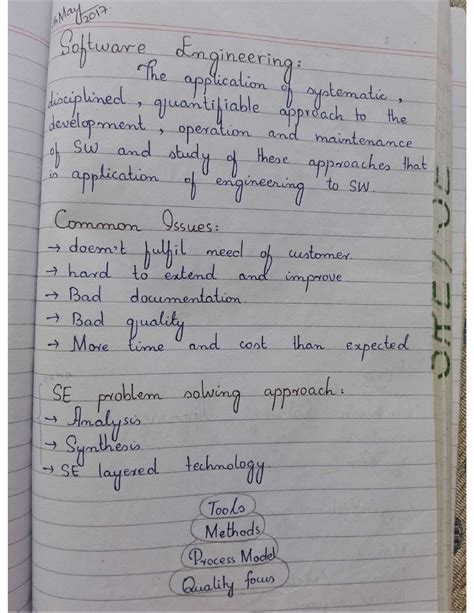 May
2017
Software Engineering:
The application of systematic,
disciplined, quantifiable approach to the
development, operation and maintenance
of SW and study of these approaches that
is application of engineering to SW.
Common Issues:
→ doesn't fulfil need of customer.
→ hard to extend and improve
→ Bad documentation.
→ Bad quality
→ More time and cost than expected
SE problem solving approach:
→ Analysis
→ Synthesis
→ SE layered technology.
Tools
Methods
Process Model
Quality focus